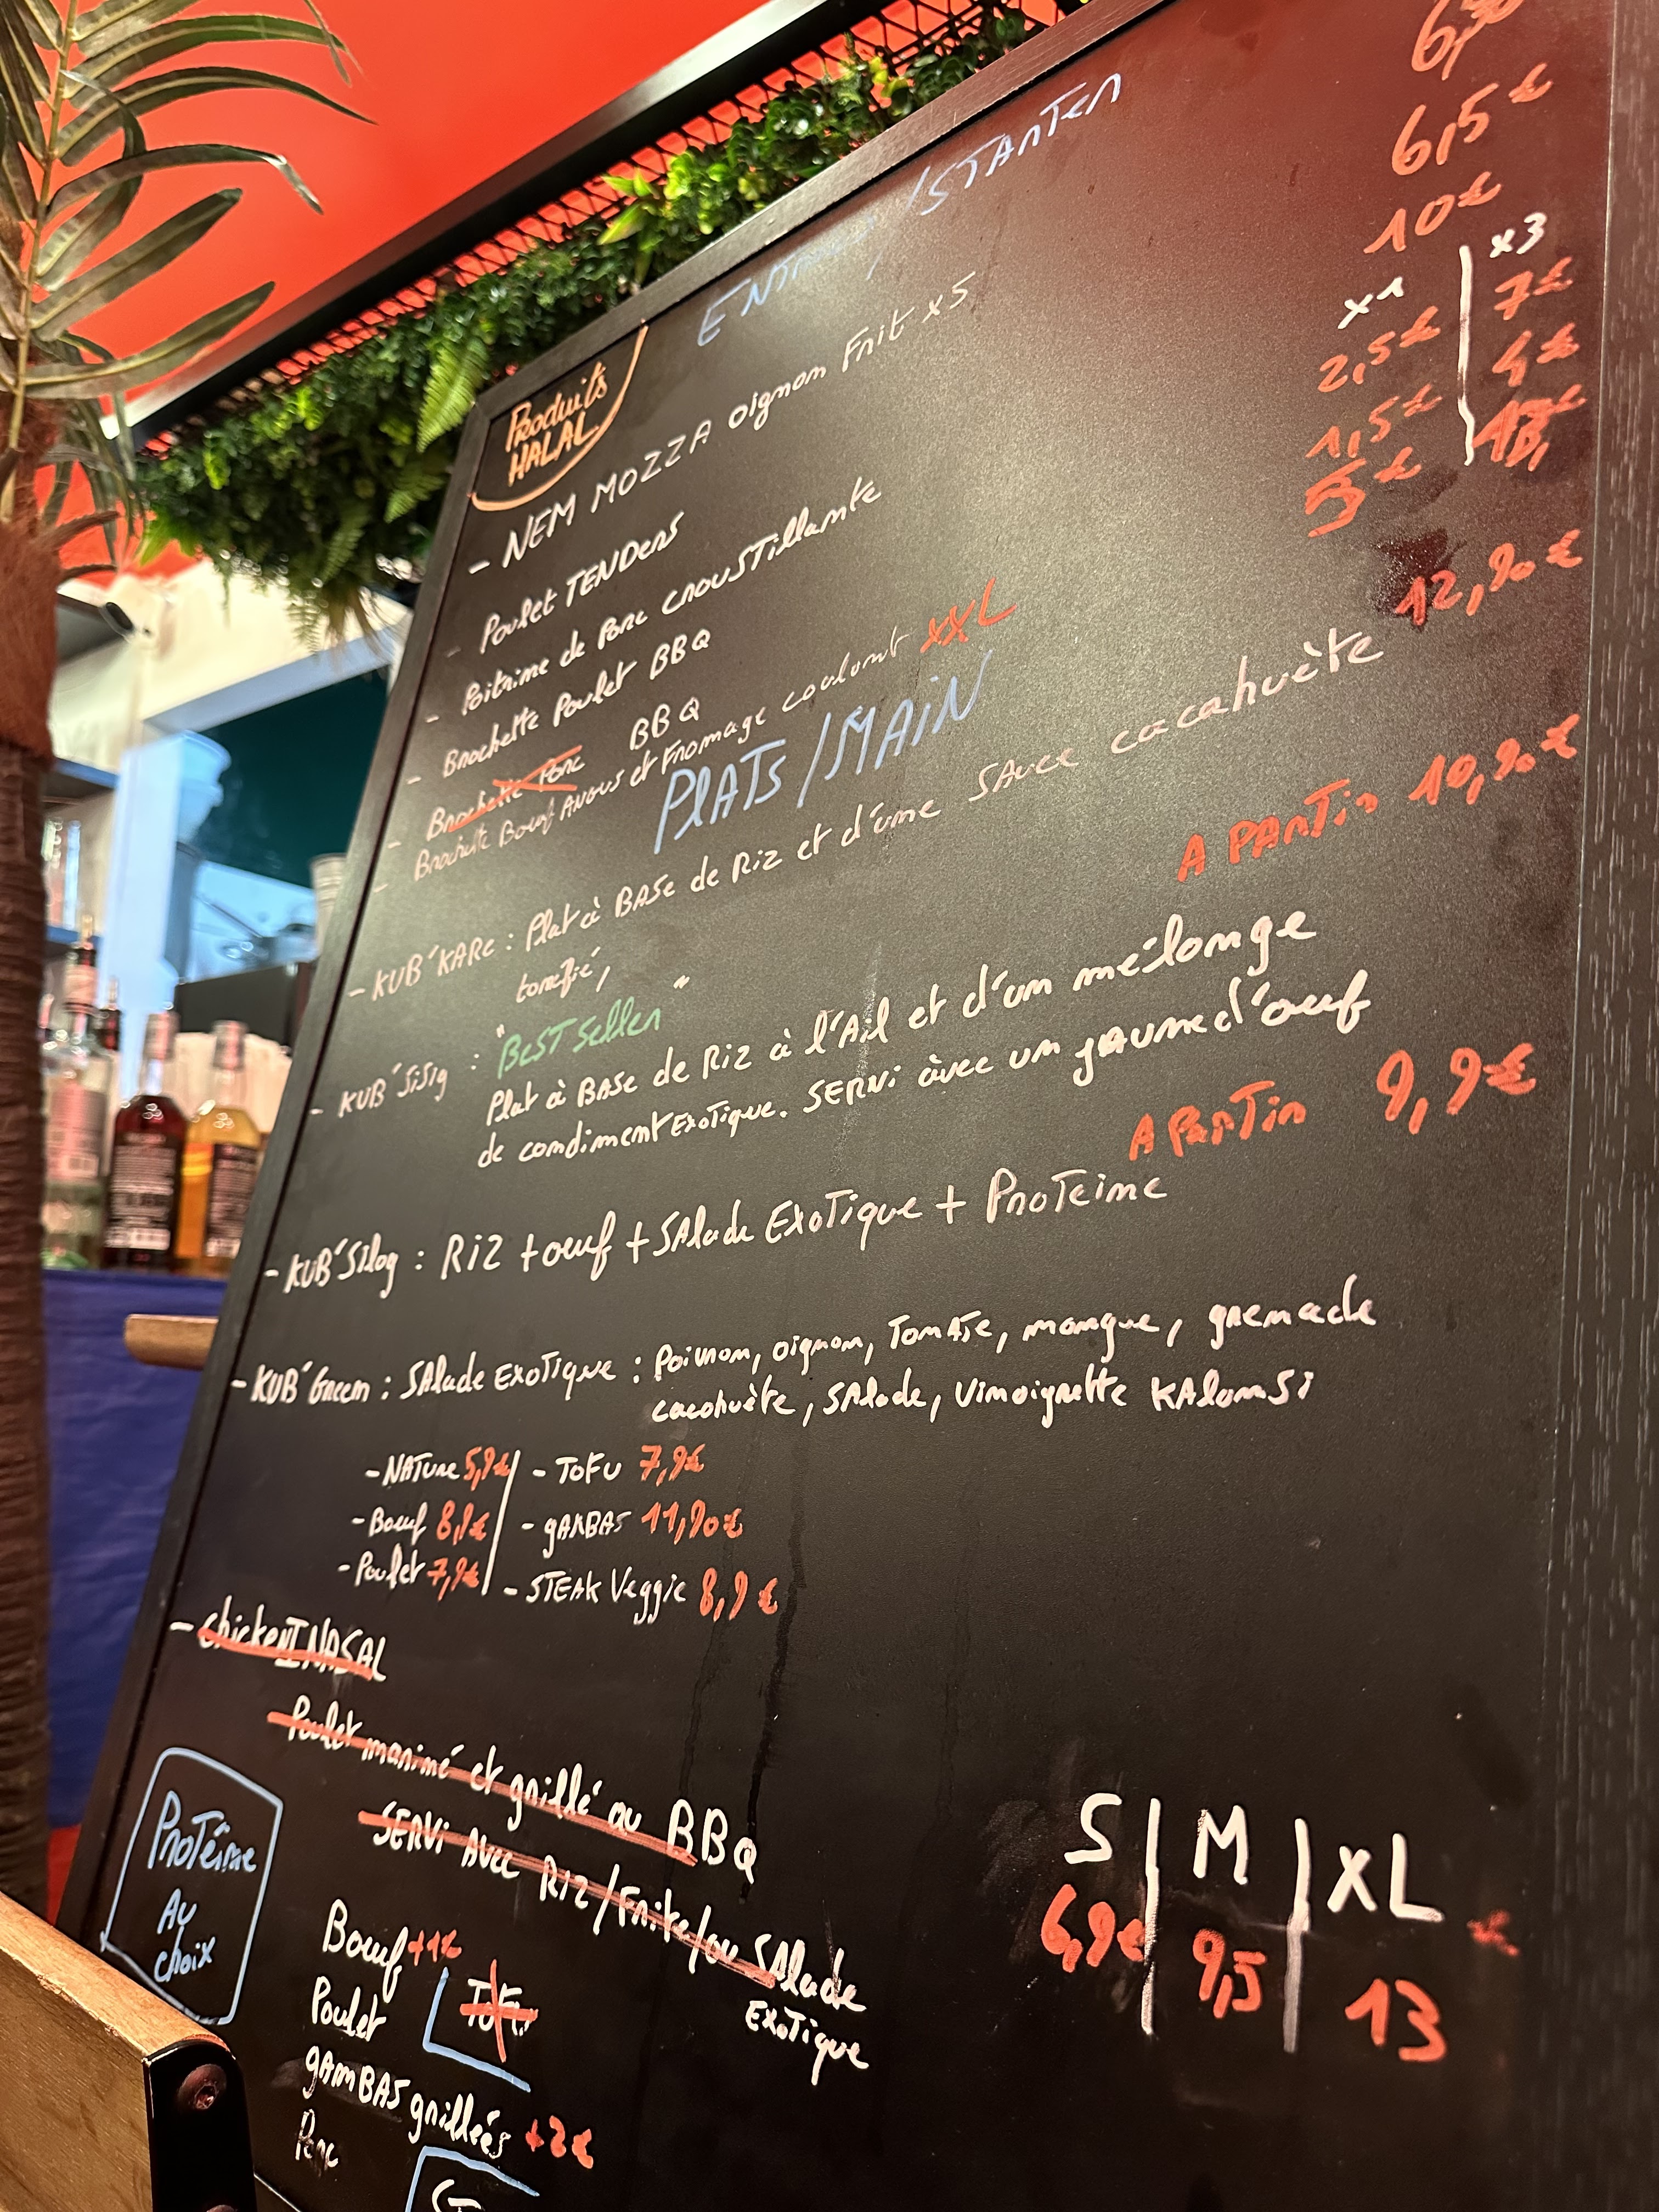 Produits
HALAL
/STARTER
- NEM MOZZA oignon Frit x5 6,50
- Poulet TENDERS 6,5€
- Poitrine de Porc croustillante 10€
x1 | x3
- Brochette Poulet BBQ 2,5€ | 7€
- Brochette Porc BBQ 1,5€ | 4€
- Brochette Boeuf Angus et Fromage coulant XXL 5€
PLATS/MAIN
- KUB'KARE : Plat à BASE de Riz et d'une SAuce cacahuète 12,90€
torréfié,
A PARTir 10,90€
- KUB'SiSig : "BEST Seller"
Plat à BASE de Riz à l'Ail et d'un mélange
de condiment Exotique. SERVi avec un jaune d'œuf
A PARTir 9,9€
- KUB'Silog : RiZ + œuf + SAlade ExoTique + ProTeine
- KUB'Green : SAlade ExoTique : Poivron, oignon, TomATe, mangue, grenade
cacahuète, SAlade, Vinaigrette KAlamSi
- NATure 5,9€ | - ToFu 7,9€
- Bœuf 8,9€ | - gAMBAS 11,90€
- Poulet 7,9€ | - STEAK Veggie 8,9€
- chicken INASAL
Poulet mariné et grillé au BBQ
SERVi Avec RiZ/Frite/ou SAlade
ExoTique
S | M | XL
6,9€ | 9,5 | 13
€
ProTéine
Au
choix
Bœuf +1€
Poulet
ToFu
gAMBAS grillées +2€
Porc